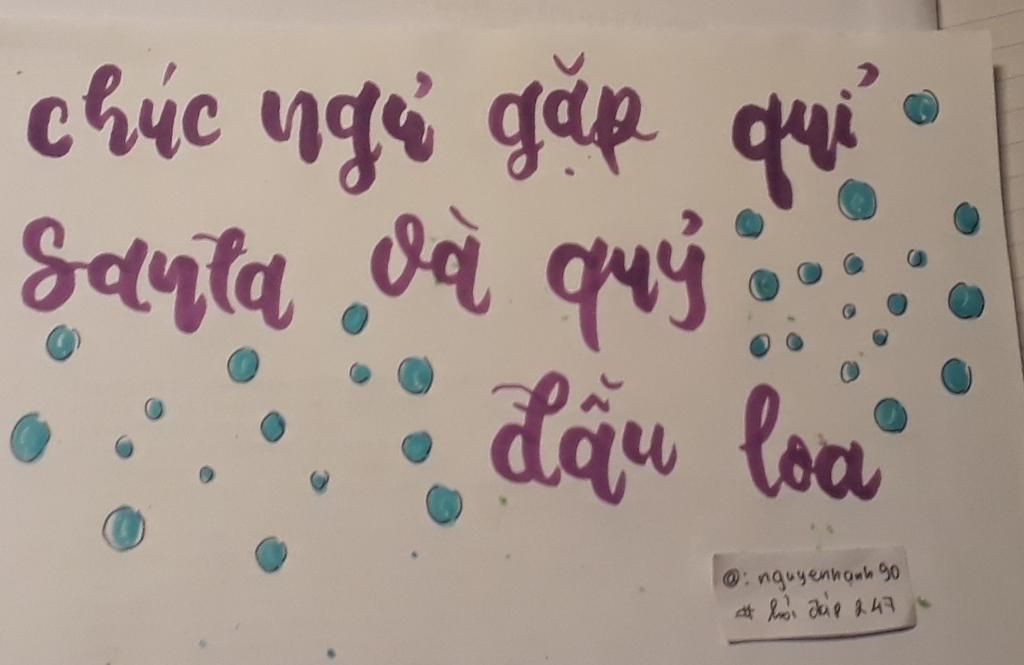 chúc ngủ gặp quỉ
Santa và quỷ
đẫu loa
@: nguyenhạnh90
# hỏi đáp 247